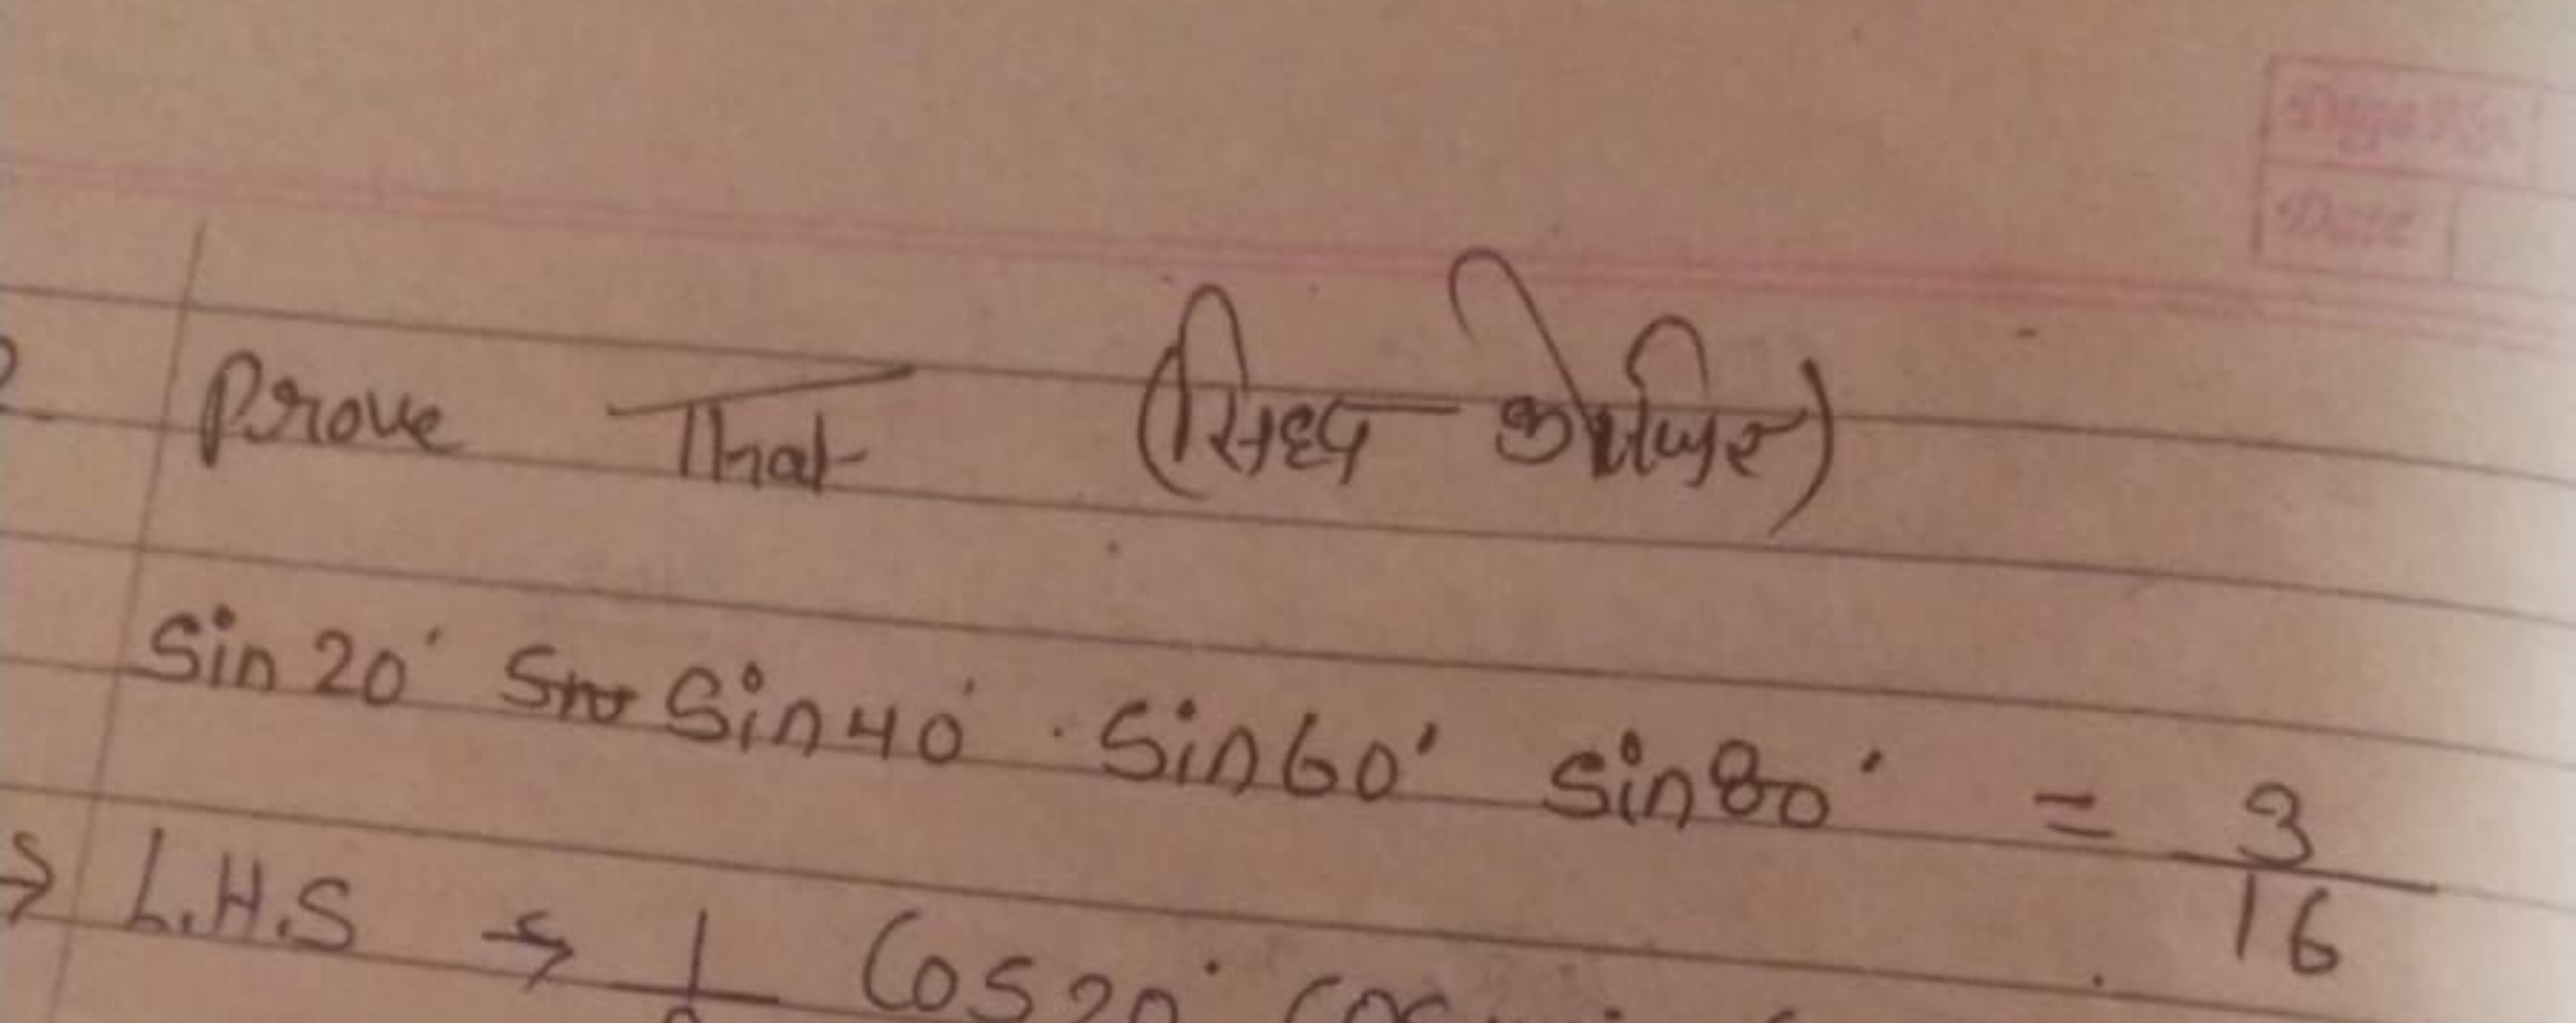 Page No.
Date
Prove That (सिध्द कीजिए)
Sin 20° Sin 40° . Sin 60° sin 80° = 3/16
→ L.H.S → 1 Cos 20°